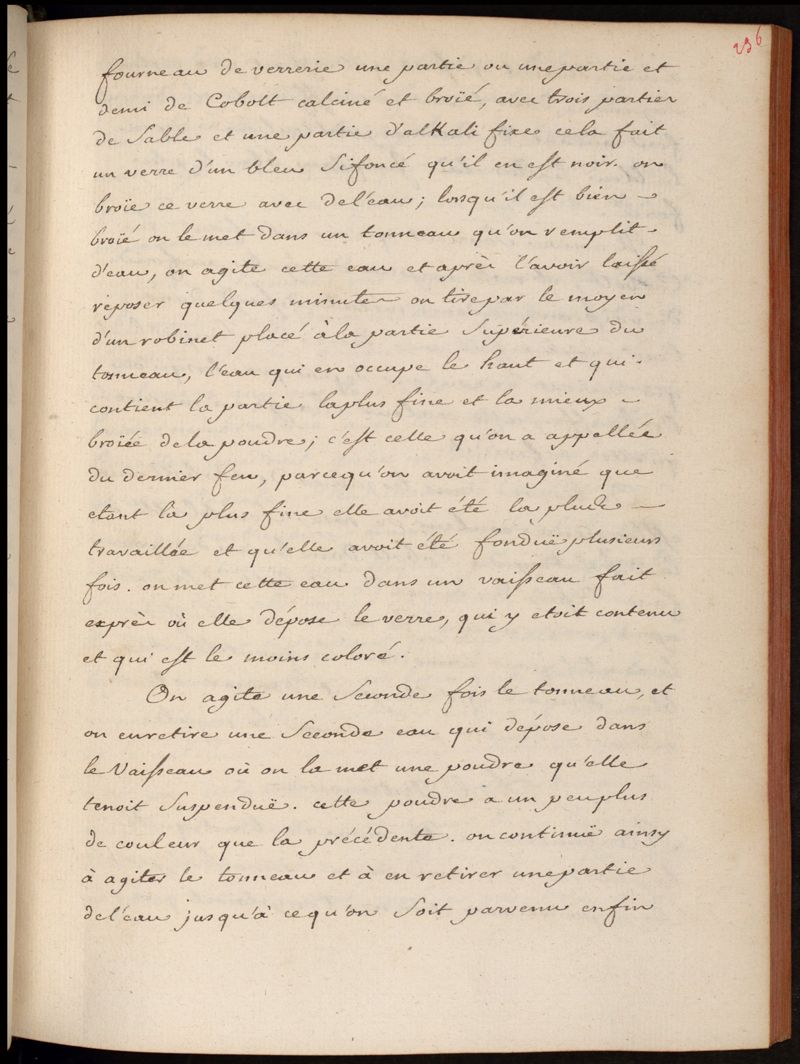 236
fourneau de verrerie une partie ou une partie et
demi de Cobolt calciné et broïé, avec trois parties
de Sable et une partie d'alKali fixe cela fait
un verre d'un bleu Sifoncé qu'il en est noir. on
broïe ce verre avec del'eau; lorsqu'il est bien -
broïé on le met dans un tonneau qu'on remplit -
d'eau, on agite cette eau et après l'avoir laissé
reposer quelques minutes on tire par le moyen
d'un robinet placé àla partie Supérieure du
tonneau, l'eau qui en occupe le haut et qui -
contient la partie laplus fine et la mieux -
broïée dela poudre; c'est celle qu'on a appellée
du dernier feu, parcequ'on avoit imaginé que
etant la plus fine elle avoit été la plus -
travaillée et qu'elle avoit été fonduë plusieurs
fois. on met cette eau dans un vaisseau fait
exprès où elle dépose le verre, qui y etoit contenu
et qui est le moins coloré.
On agite une Seconde fois le tonneau, et
on enretire une Seconde eau qui dépose dans
le Vaisseau où on la met une poudre qu'elle
tenoit Suspenduë. cette poudre a un peuplus
de couleur que la précédente. on continuë ainsy
à agiter le tonneau et à en retirer une partie
del'eau jusqu'à cequ'on Soit parvenu enfin